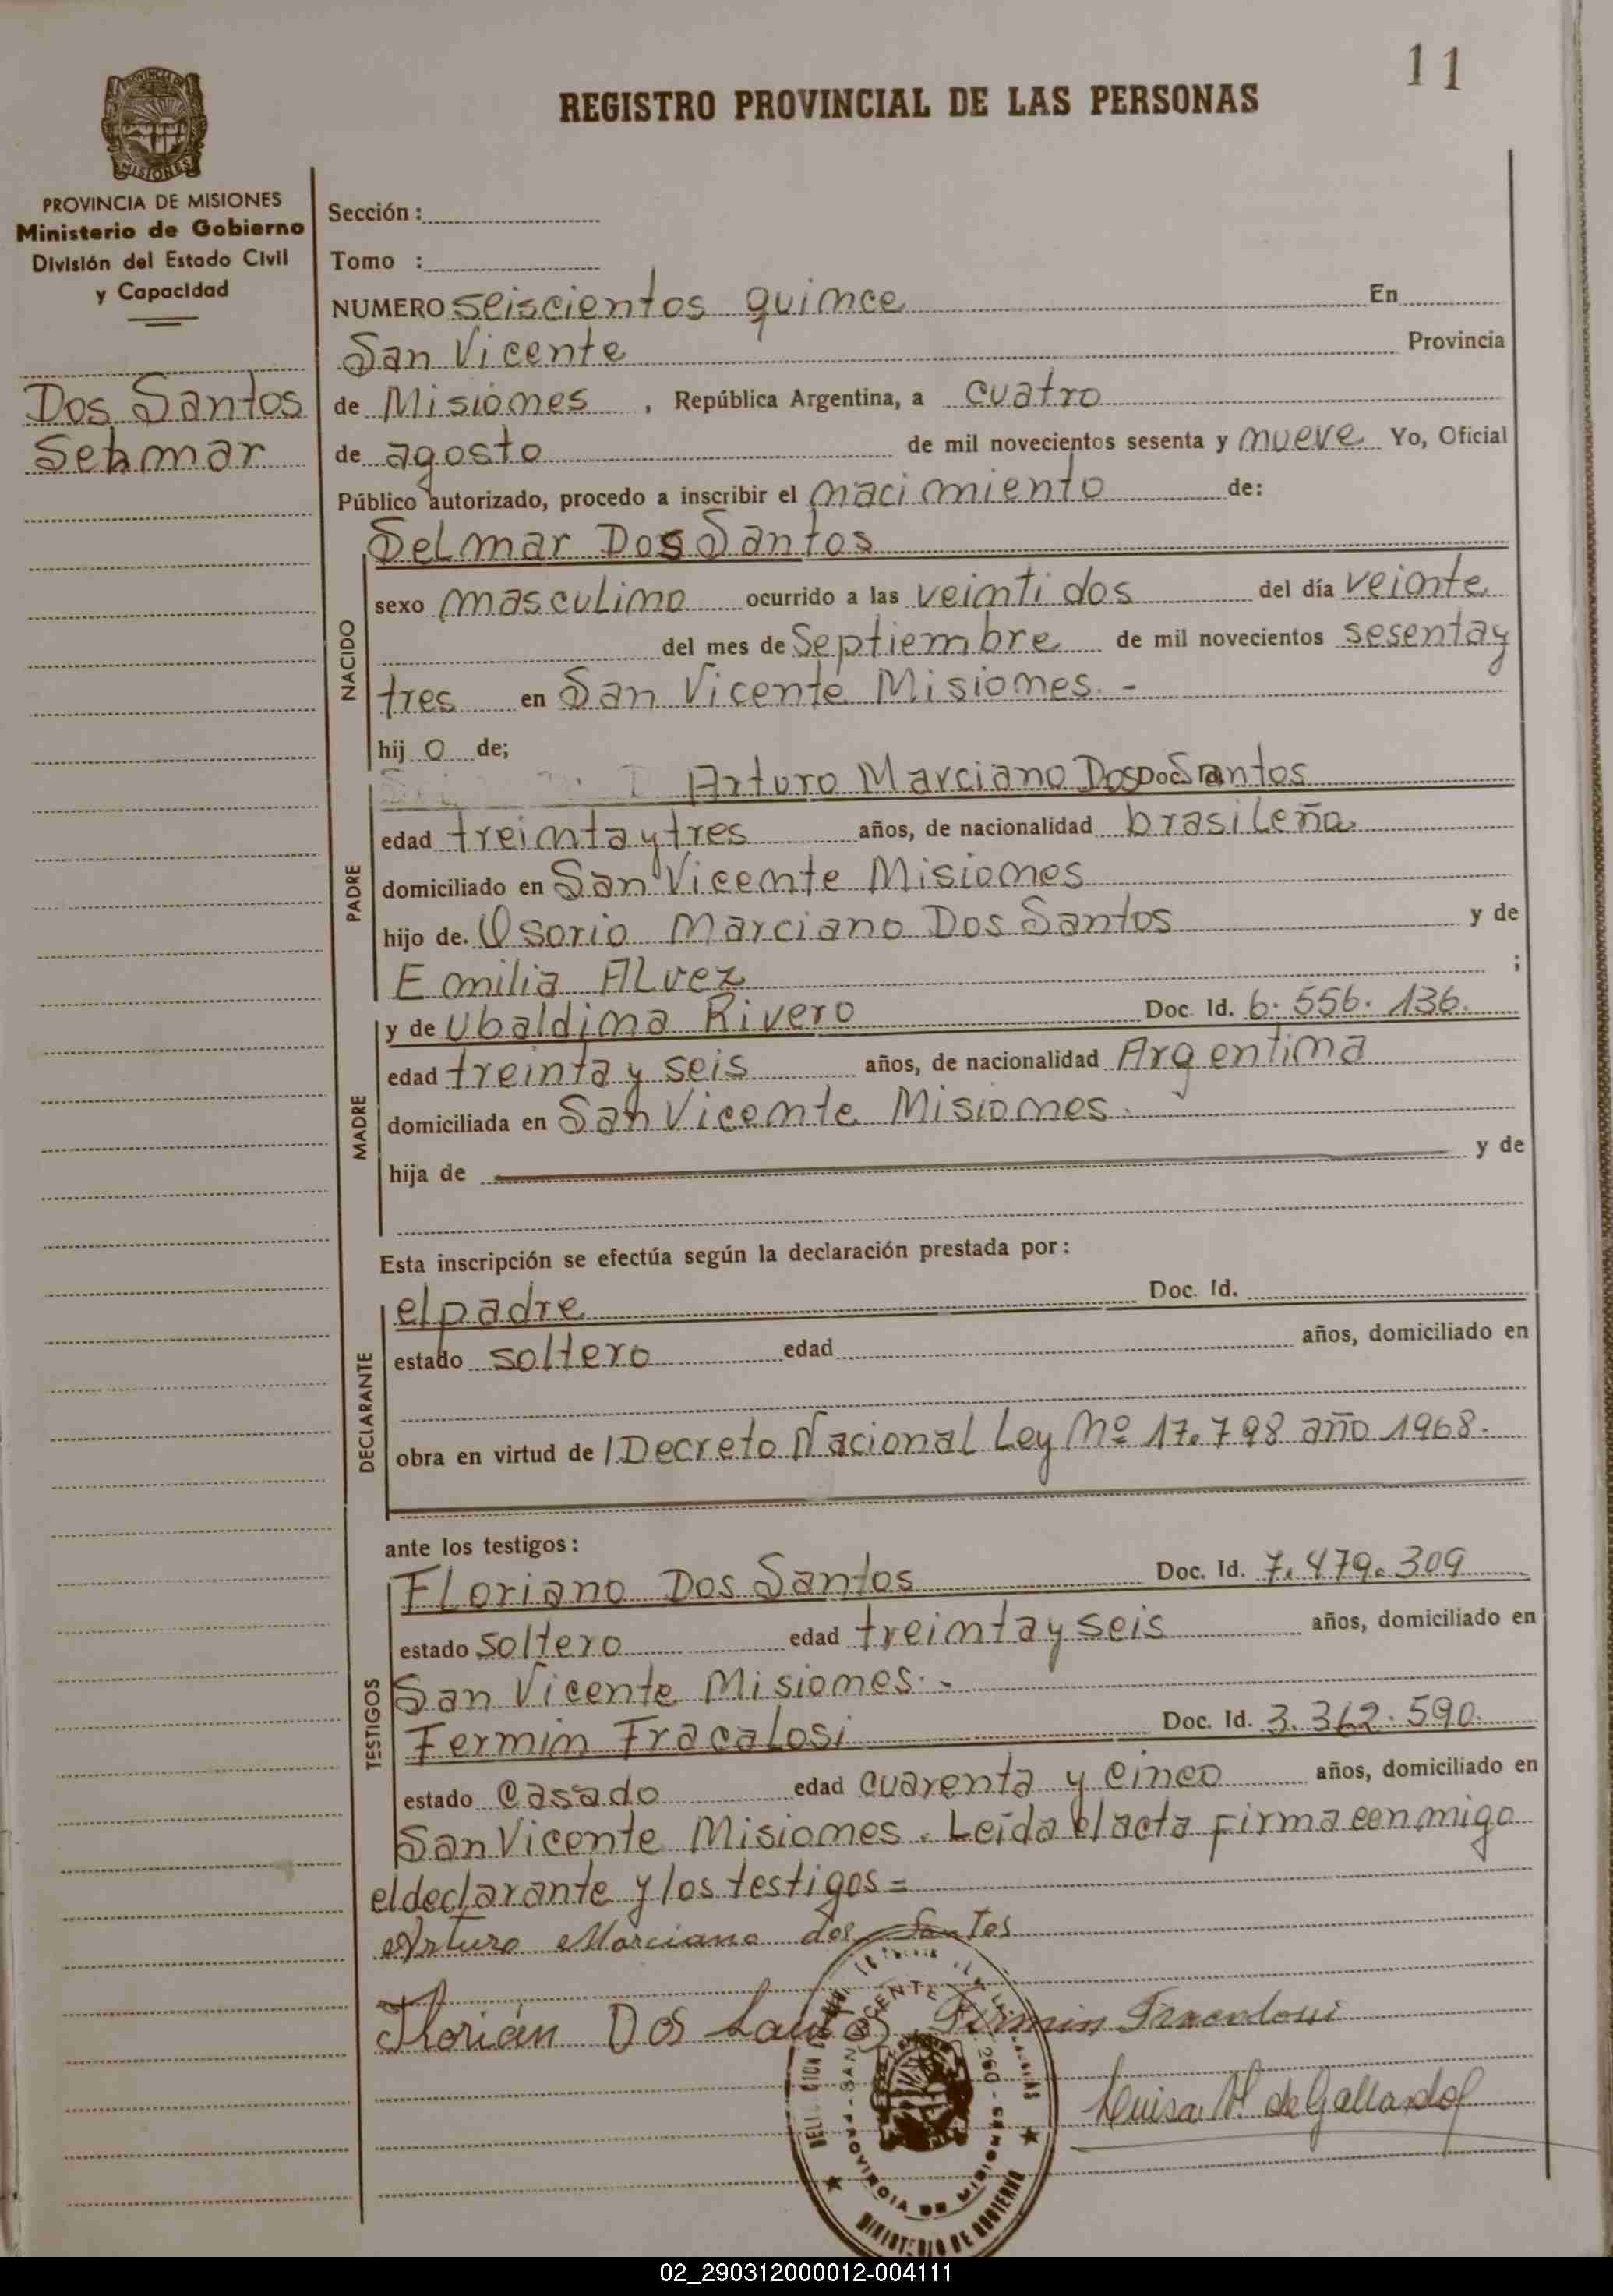 11
PROVINCIA DE MISIONES
MISIONES
REGISTRO PROVINCIAL DE LAS PERSONAS
PROVINCIA DE MISIONES
Ministerio de Gobierno
División del Estado Civil
y Capacidad
Dos Santos
Selmar
Sección :
Tomo :
NUMERO seiscientos quince En
San Vicente Provincia
de Misiones , República Argentina, a cuatro
de agosto de mil novecientos sesenta y nueve Yo, Oficial
Público autorizado, procedo a inscribir el nacimiento de:
Selmar Dos Santos
NACIDO
sexo masculino ocurrido a las veinti dos del día veinte
del mes de Septiembre de mil novecientos sesenta y
tres en San Vicente Misiones. -
hij o de;
PADRE
Arturo Marciano Dos Santos
edad treinta y tres años, de nacionalidad brasileña
domiciliado en San Vicente Misiones
hijo de. Osorio Marciano Dos Santos y de
Emilia Alvez ;
MADRE
y de Ubaldina Rivero Doc. Id. 6. 556. 136.
edad treinta y seis años, de nacionalidad Argentina
domiciliada en San Vicente Misiones.
hija de y de
Esta inscripción se efectúa según la declaración prestada por :
DECLARANTE
el padre Doc. Id.
estado soltero edad años, domiciliado en
obra en virtud de l Decreto Nacional Ley Nº 17.798 año 1968.
ante los testigos :
TESTIGOS
Floriano Dos Santos Doc. Id. 7. 479. 309
estado soltero edad treinta y seis años, domiciliado en
San Vicente Misiones. -
Fermin Fracalosi Doc. Id. 3. 362. 590.
estado casado edad cuarenta y cinco años, domiciliado en
San Vicente Misiones. Leída el acta firma conmigo
el declarante y los testigos =
Arturo Marciano dos Santos
Florián Dos Santos Fermin Fracalossi
Luisa de Gallardo
SAN VICENTE
PROVINCIA DE MISIONES
MINISTERIO DE GOBIERNO
02_290312000012-004111